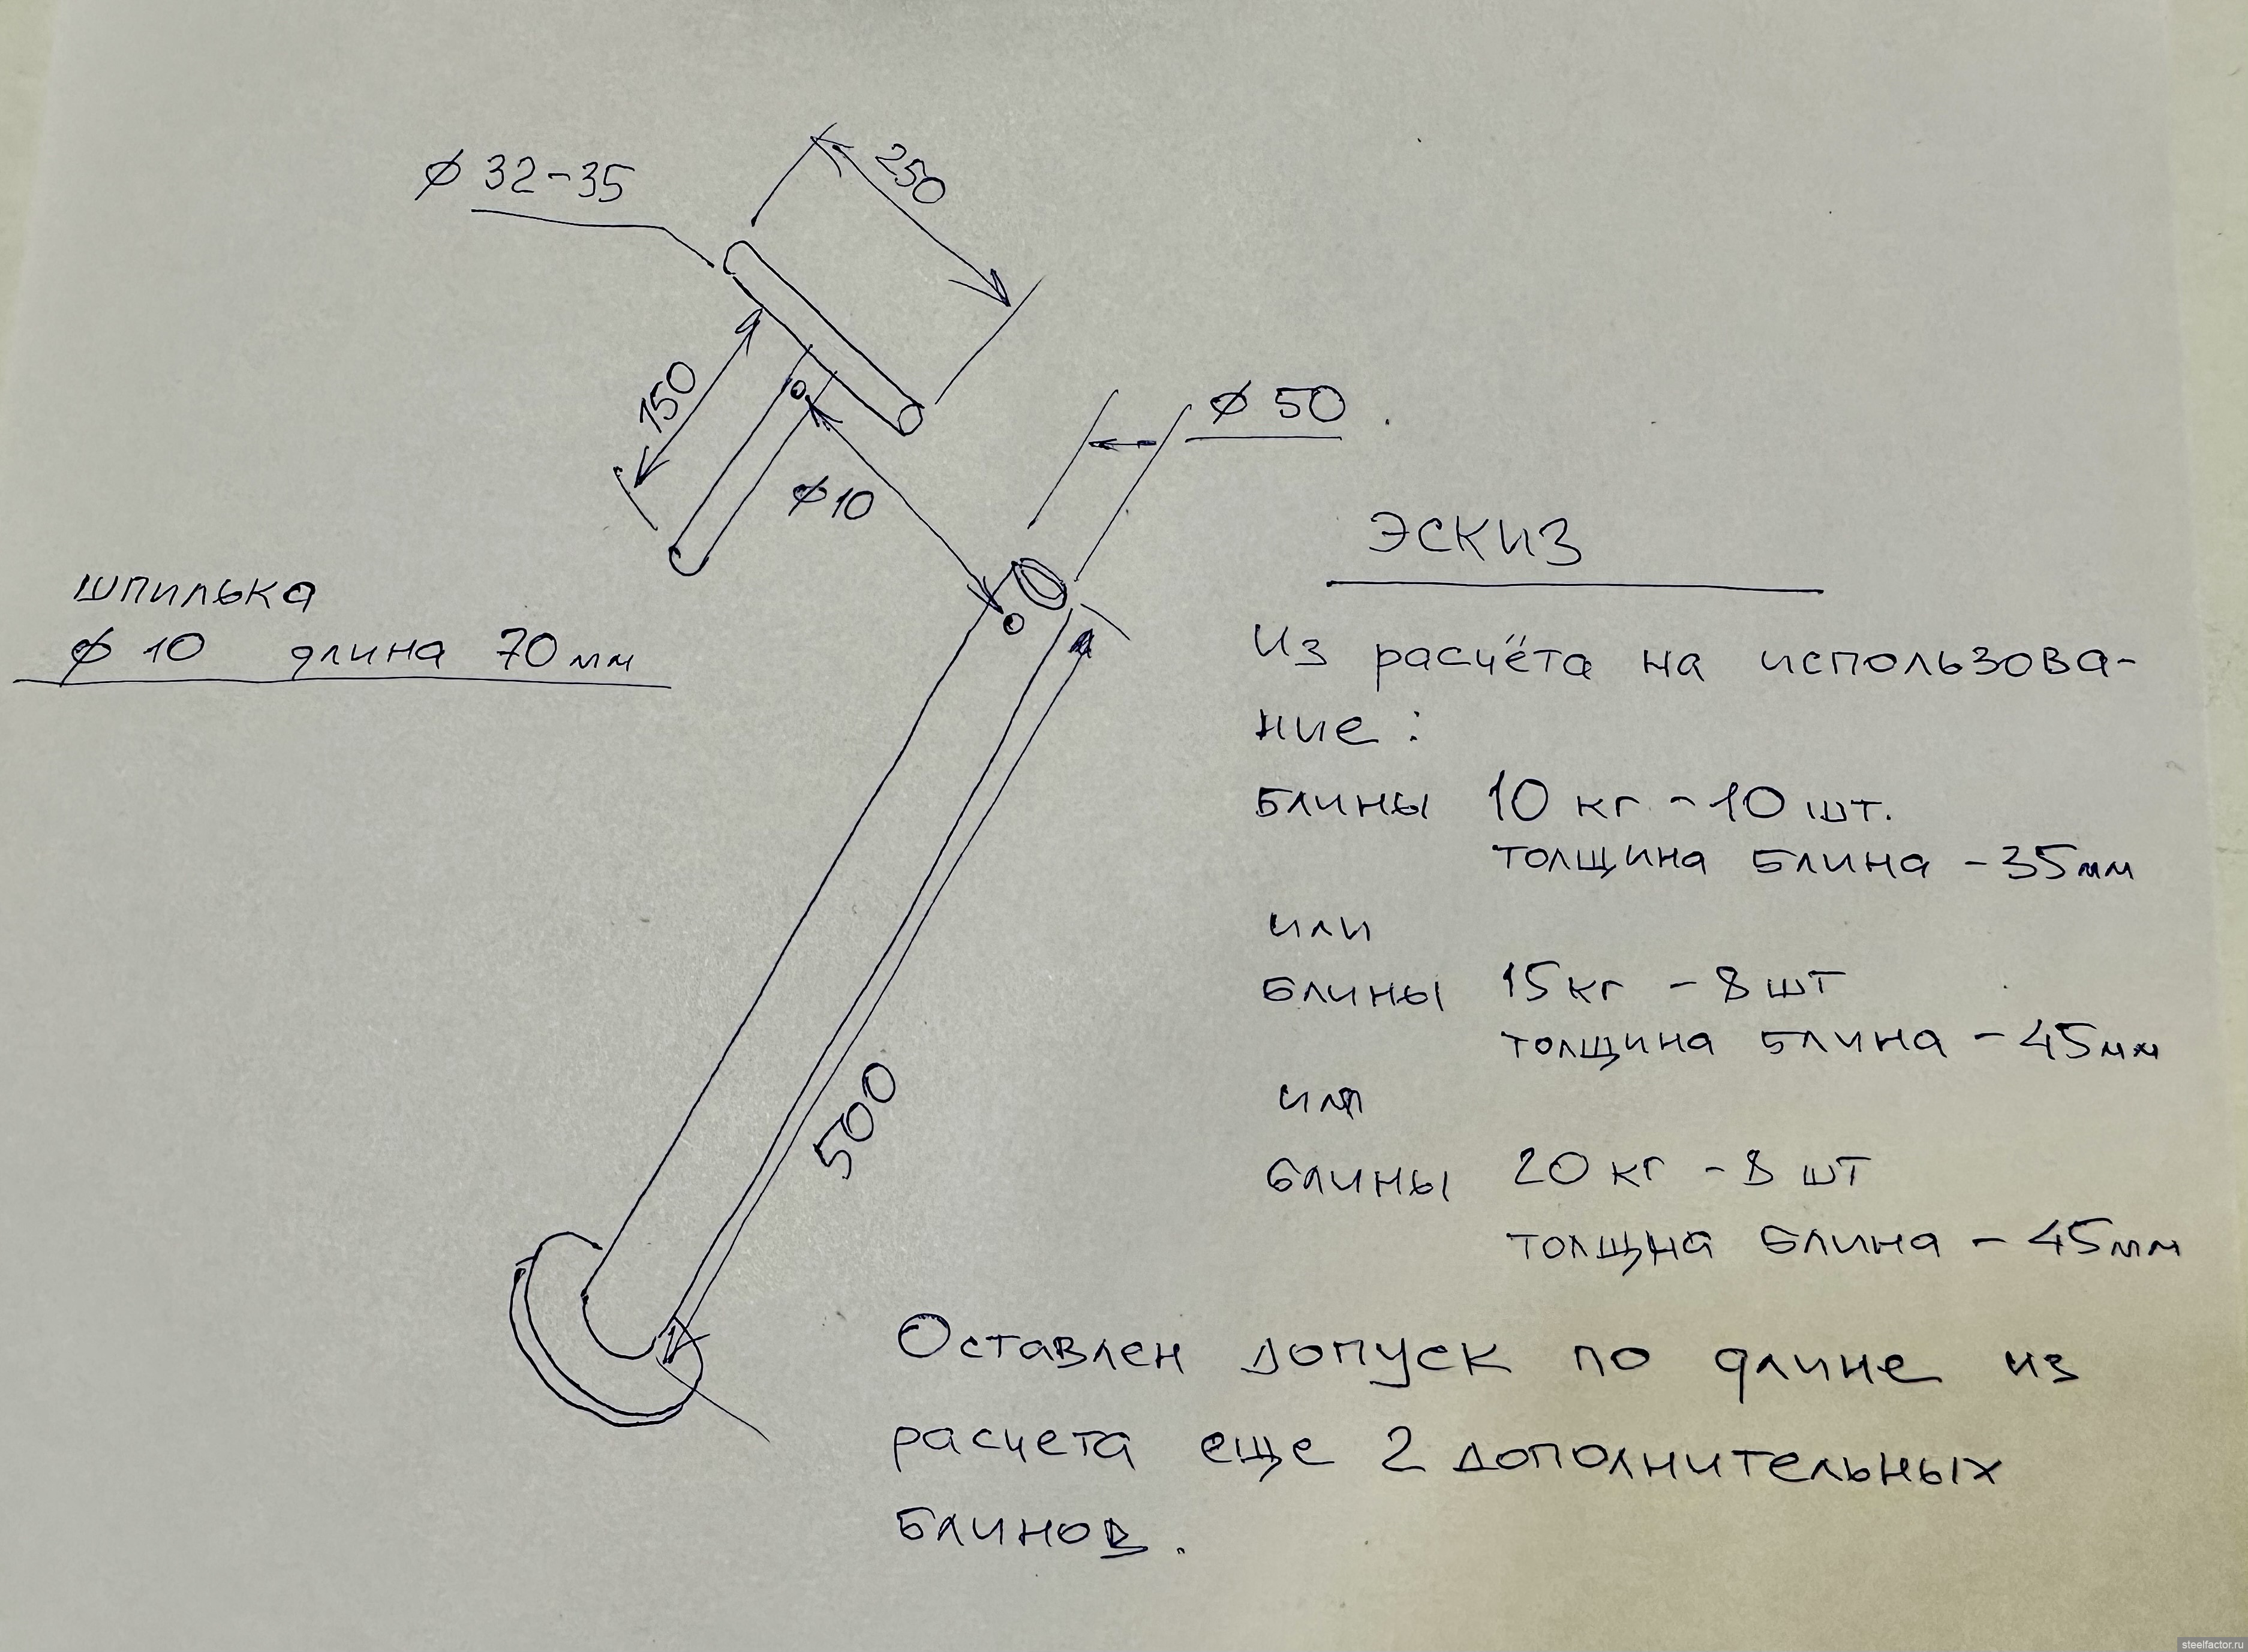 ⌀ 32-35
250
150
⌀ 50
⌀10
шпилька
⌀ 10 длина 70мм
500
ЭСКИЗ
Из расчёта на использова-
ние:
блины 10 кг - 10 шт.
толщина блина - 35мм
или
блины 15кг - 8 шт
толщина блина - 45мм
или
блины 20кг - 8 шт
толщина блина - 45мм
Оставлен допуск по длине из
расчета еще 2 дополнительных
блинов.
steelfactor.ru